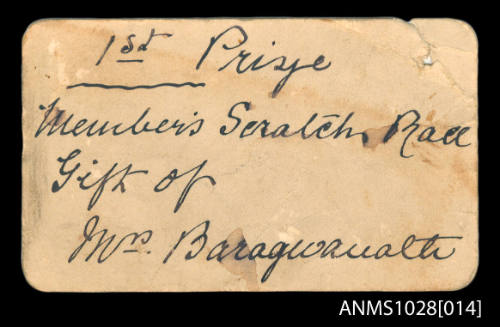 1st Prize
Member's Scratch Race
Gift of
Mrs. Baragwanath
ANMS1028[014]